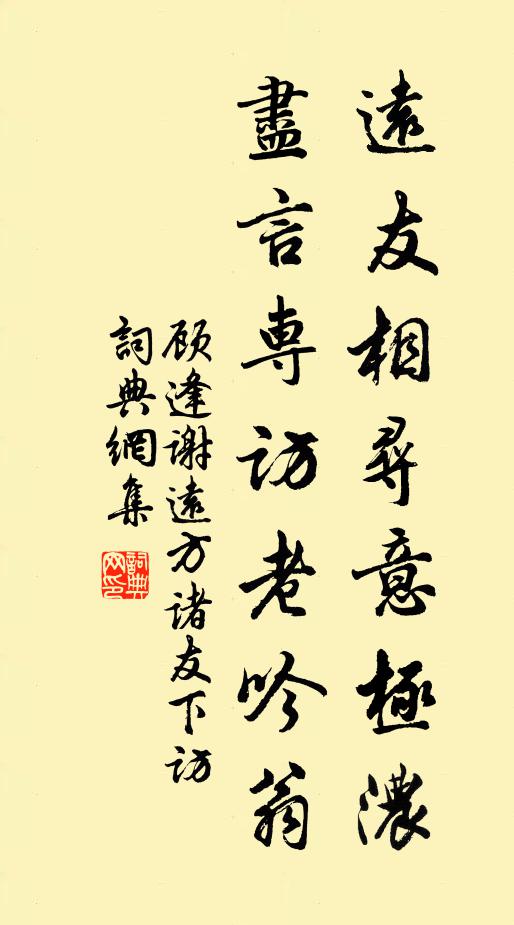 遠友相尋意極濃
盡言專訪老吟翁
顾逢謝遠方诸友下訪
詞典網集
詞典网印